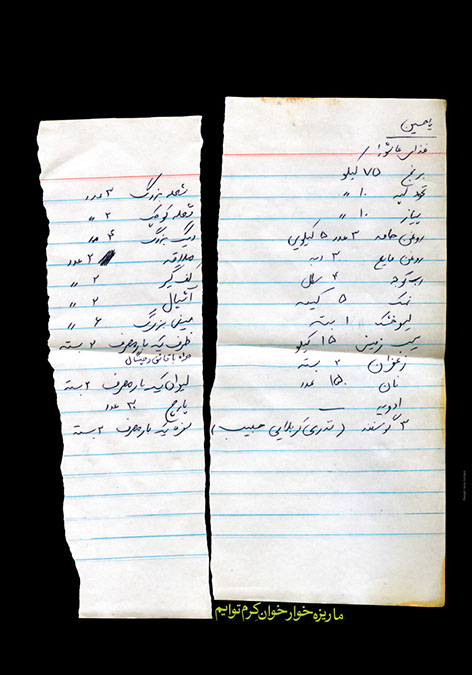 یا حسین
غذای عاشورا
برنج ۷۵ کیلو
لپه ۱۰ "
پیاز ۱۰ "
روغن جامد ۳ عدد ۵ کیلویی
روغن مایع ۳
رب گوجه ۴
نمک ۵ کیسه
لیمو خشک ۱ بسته
سیب زمینی ۱۵ کیلو
زعفران ۲ بسته
نان ۱۵۰ عدد
ادویه ـ
۳ گوسفند (نذری کربلایی حبیب)
شعله بزرگ ۳ عدد
شعله کوچک ۲ "
دیگ بزرگ ۴ عدد
ملاقه ۲ عدد
کفگیر ۲ "
آشپال ۲ "
سینی بزرگ ۶ "
ظرف یکبار مصرف ۲ بسته
همراه با قاشق و چنگال
لیوان یکبار مصرف ۲ بسته
پارچ ۳۰ عدد
سفره یکبار مصرف ۲ بسته
ما ریزه خوار خوان کرم توایم